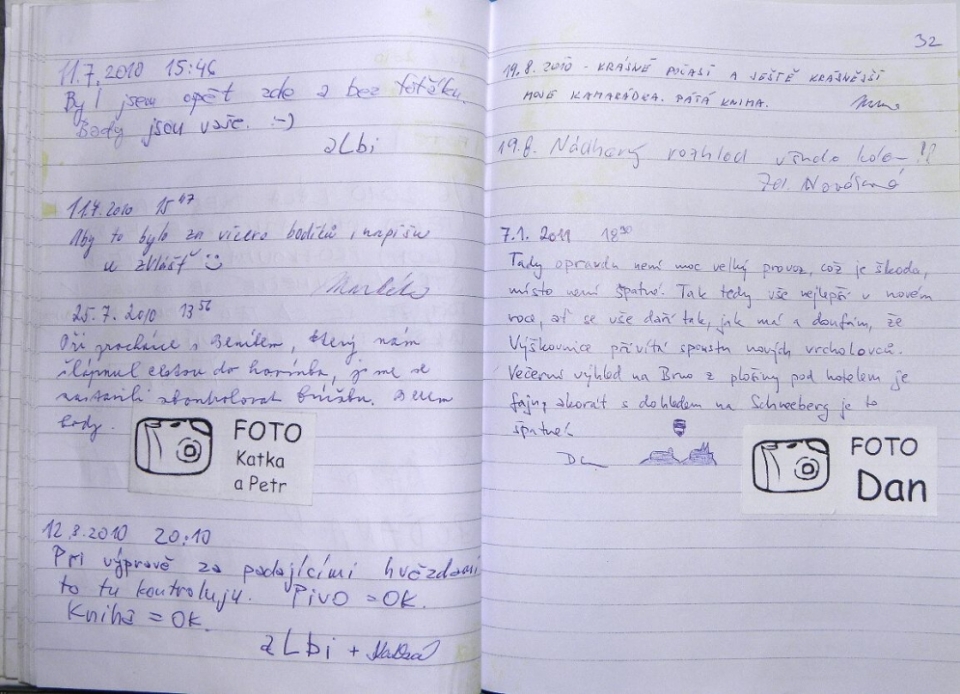 11.7.2010 15:46
Byl jsem opět zde a bez těžítku.
Body jsou vaše. :-)
aLbi
11.7.2010 15 47
Aby to bylo za vícero bodíků, napíšu
u zvlášť
25.7.2010 13 56
Při procházce s Benátem, který nám
šlápnul cestou do hovínka, jsme se
zastavili zkontrolovat knížku. Berem
body.
FOTO
Katka
a Petr
12.8.2010 20:10
Při výpravě za padajícími hvězdami
to tu kontroluju. Pivo = OK.
Kniha = OK.
aLbi +
32
19.8.2010 - KRÁSNÉ POČASÍ A JEŠTĚ KRÁSNĚJŠÍ
NOVÉ KAMARÁDKA. PÁTÁ KNIHA.
19.8. Nádherný rozhled všude kolem!!
7.1. 2011 18 30
Tady opravdu není moc velký provoz, což je škoda,
místo není špatné. Tak tedy vše nejlepší v novém
roce, ať se vše daří tak, jak má a doufám, že
Výškovnice přivítá spoustu nových vrcholovců.
Večerní výhled na Brno z plošiny pod hotelem je
fajn, akorát s dohledem na Schneeberg je to
špatné!
FOTO
Dan